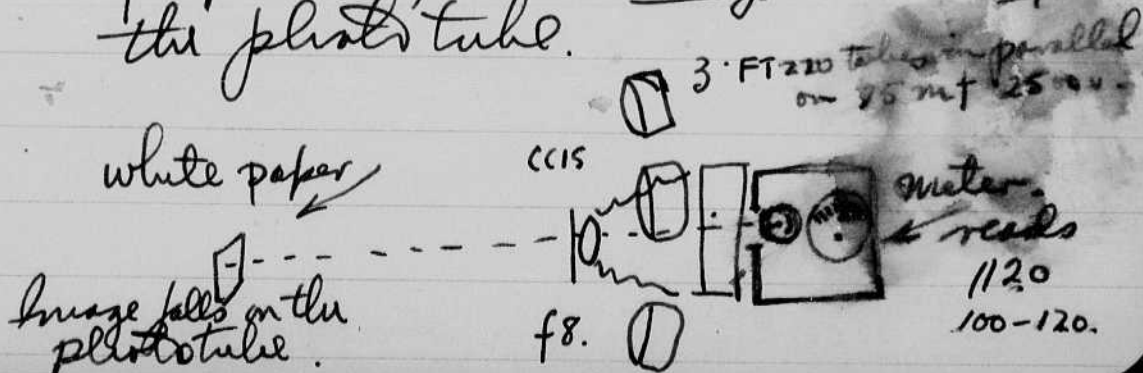 the phototube.
3. FT220 tubes in parallel
on 85 mf 2500 v.
white paper
CC15
meter.
reads
1120
100-120.
Image falls on the
phototube.
f8.